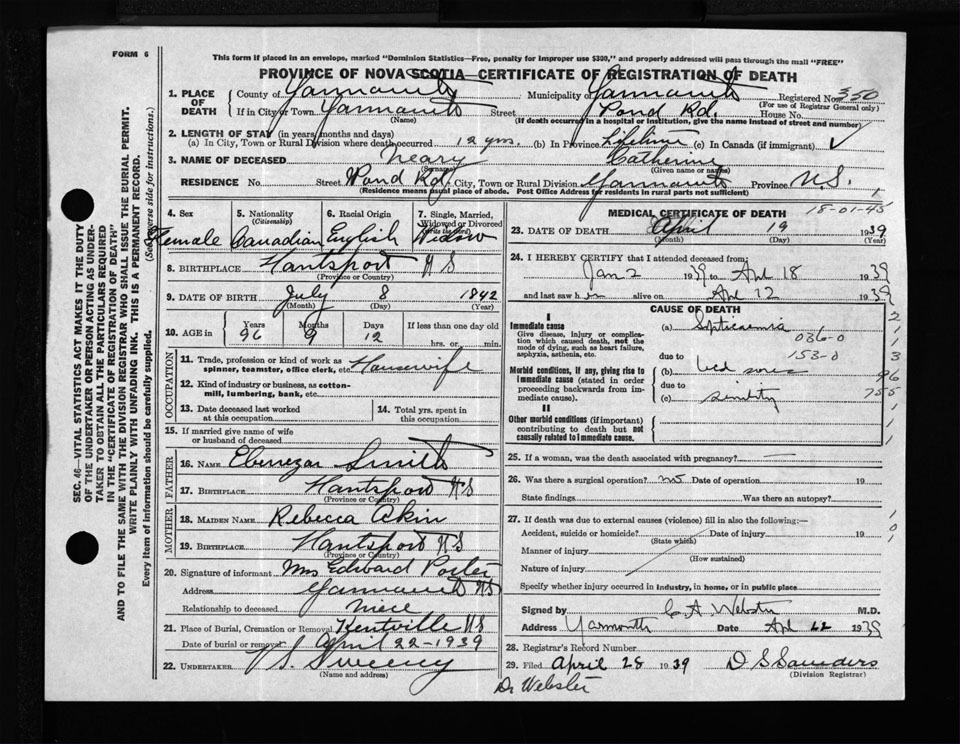 FORM 6
This form if placed in an envelope, marked "Dominion Statistics—Free, penalty for improper use $300," and properly addressed will pass through the mail "FREE"
PROVINCE OF NOVA SCOTIA—CERTIFICATE OF REGISTRATION OF DEATH
1. PLACE OF DEATH County of Yarmouth Municipality of Yarmouth Registered No. 350
(For use of Registrar General only)
If in City or Town Yarmouth Street Pond Rd. House No.
(Name) (If death occurred in a hospital or institution, give the name instead of street and number)
2. LENGTH OF STAY (in years, months and days)
(a) In City, Town or Rural Division where death occurred 12 yrs. (b) In Province Lifetime (c) In Canada (if immigrant) ✓
3. NAME OF DECEASED Neary Catherine
(Surname) (Given name or names)
RESIDENCE No. Street Pond Rd. City, Town or Rural Division Yarmouth Province N.S.
(Residence means usual place of abode. Post Office Address for residents in rural parts not sufficient)
4. Sex 5. Nationality (Citizenship) 6. Racial Origin 7. Single, Married, Widowed or Divorced (Write the word)
Female Canadian English Widow
8. BIRTHPLACE Hantsport N S
(Province or Country)
9. DATE OF BIRTH July 8 1842
(Month) (Day) (Year)
10. AGE in Years Months Days If less than one day old
96 9 12 hrs. or min.
OCCUPATION
11. Trade, profession or kind of work as spinner, teamster, office clerk, etc. Housewife
12. Kind of industry or business, as cotton-mill, lumbering, bank, etc.
13. Date deceased last worked at this occupation 14. Total yrs. spent in this occupation
15. If married give name of wife or husband of deceased
FATHER
16. NAME Ebenezar Smith
17. BIRTHPLACE Hantsport N S
(Province or Country)
MOTHER
18. MAIDEN NAME Rebecca Akin
19. BIRTHPLACE Hantsport N S
(Province or Country)
20. Signature of informant Mrs Edward Porter
Address Yarmouth NS
Relationship to deceased niece
21. Place of Burial, Cremation or Removal Kentville N S
Date of burial or removal April 22-1939
22. UNDERTAKER V S Sweeny
(Name and address)
MEDICAL CERTIFICATE OF DEATH 18-01-45
23. DATE OF DEATH April 19 1939
(Month) (Day) (Year)
24. I HEREBY CERTIFY that I attended deceased from
Jan 2 1939 to Apl 18 1939
and last saw h er alive on Apl 12 1939
CAUSE OF DEATH
I
Immediate cause
Give disease, injury or complication which caused death, not the mode of dying, such as heart failure, asphyxia, asthenia, etc.
(a) Septicaemia
036-0
153-0
due to
Morbid conditions, if any, giving rise to immediate cause (stated in order proceeding backwards from immediate cause).
(b) bed sores
due to
(c) senility
II
Other morbid conditions (if important) contributing to death but not causally related to immediate cause.
25. If a woman, was the death associated with pregnancy? —
26. Was there a surgical operation? no Date of operation 19
State findings Was there an autopsy?
27. If death was due to external causes (violence) fill in also the following:—
Accident, suicide or homicide? Date of injury 19
(State which)
Manner of injury
(How sustained)
Nature of injury
Specify whether injury occurred in industry, in home, or in public place
Signed by C A. Webster M.D.
Address Yarmouth Date Apl 22 1939
28. Registrar's Record Number
29. Filed April 28 1939 D S Saunders
(Division Registrar)
Dr Webster
SEC. 46—VITAL STATISTICS ACT MAKES IT THE DUTY
OF THE UNDERTAKER OR PERSON ACTING AS UNDER-
TAKER TO OBTAIN ALL THE PARTICULARS REQUIRED
IN THE "CERTIFICATE OF REGISTRATION OF DEATH"
AND TO FILE THE SAME WITH THE DIVISION REGISTRAR WHO SHALL ISSUE THE BURIAL PERMIT.
WRITE PLAINLY WITH UNFADING INK. THIS IS A PERMANENT RECORD.
Every item of information should be carefully supplied. (See reverse side for instructions.)